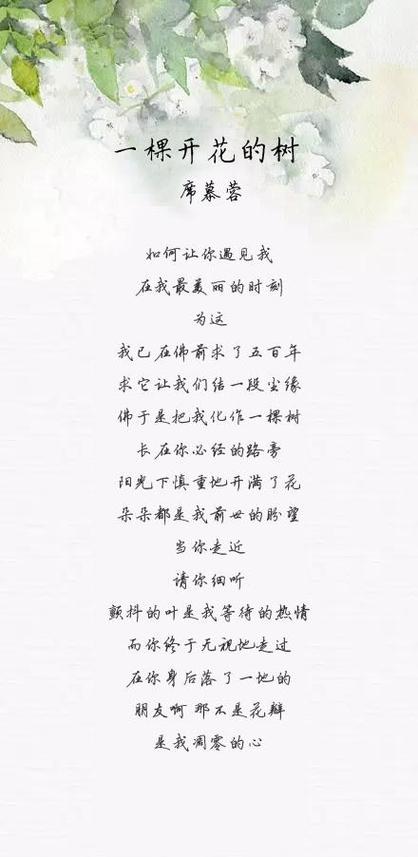 一棵开花的树
席慕蓉
如何让你遇见我
在我最美丽的时刻
为这
我已在佛前求了五百年
求它让我们结一段尘缘
佛于是把我化作一棵树
长在你必经的路旁
阳光下慎重地开满了花
朵朵都是我前世的盼望
当你走近
请你细听
颤抖的叶是我等待的热情
而你终于无视地走过
在你身后落了一地的
朋友啊 那不是花瓣
是我凋零的心